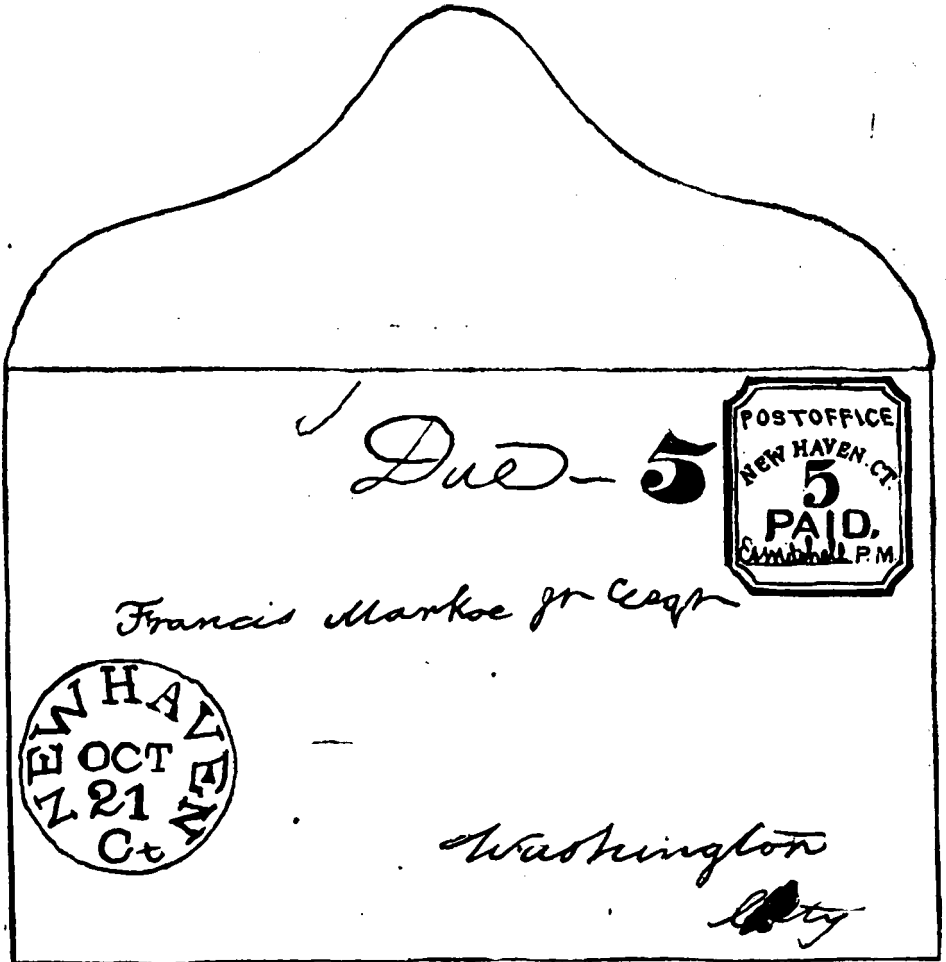 Due - 5
POST OFFICE
NEW HAVEN. CT.
5
PAID.
E. A. Mitchell P.M.
Francis Markoe Jr Esqr
NEW HAVEN
OCT
21
Ct
Washington
City